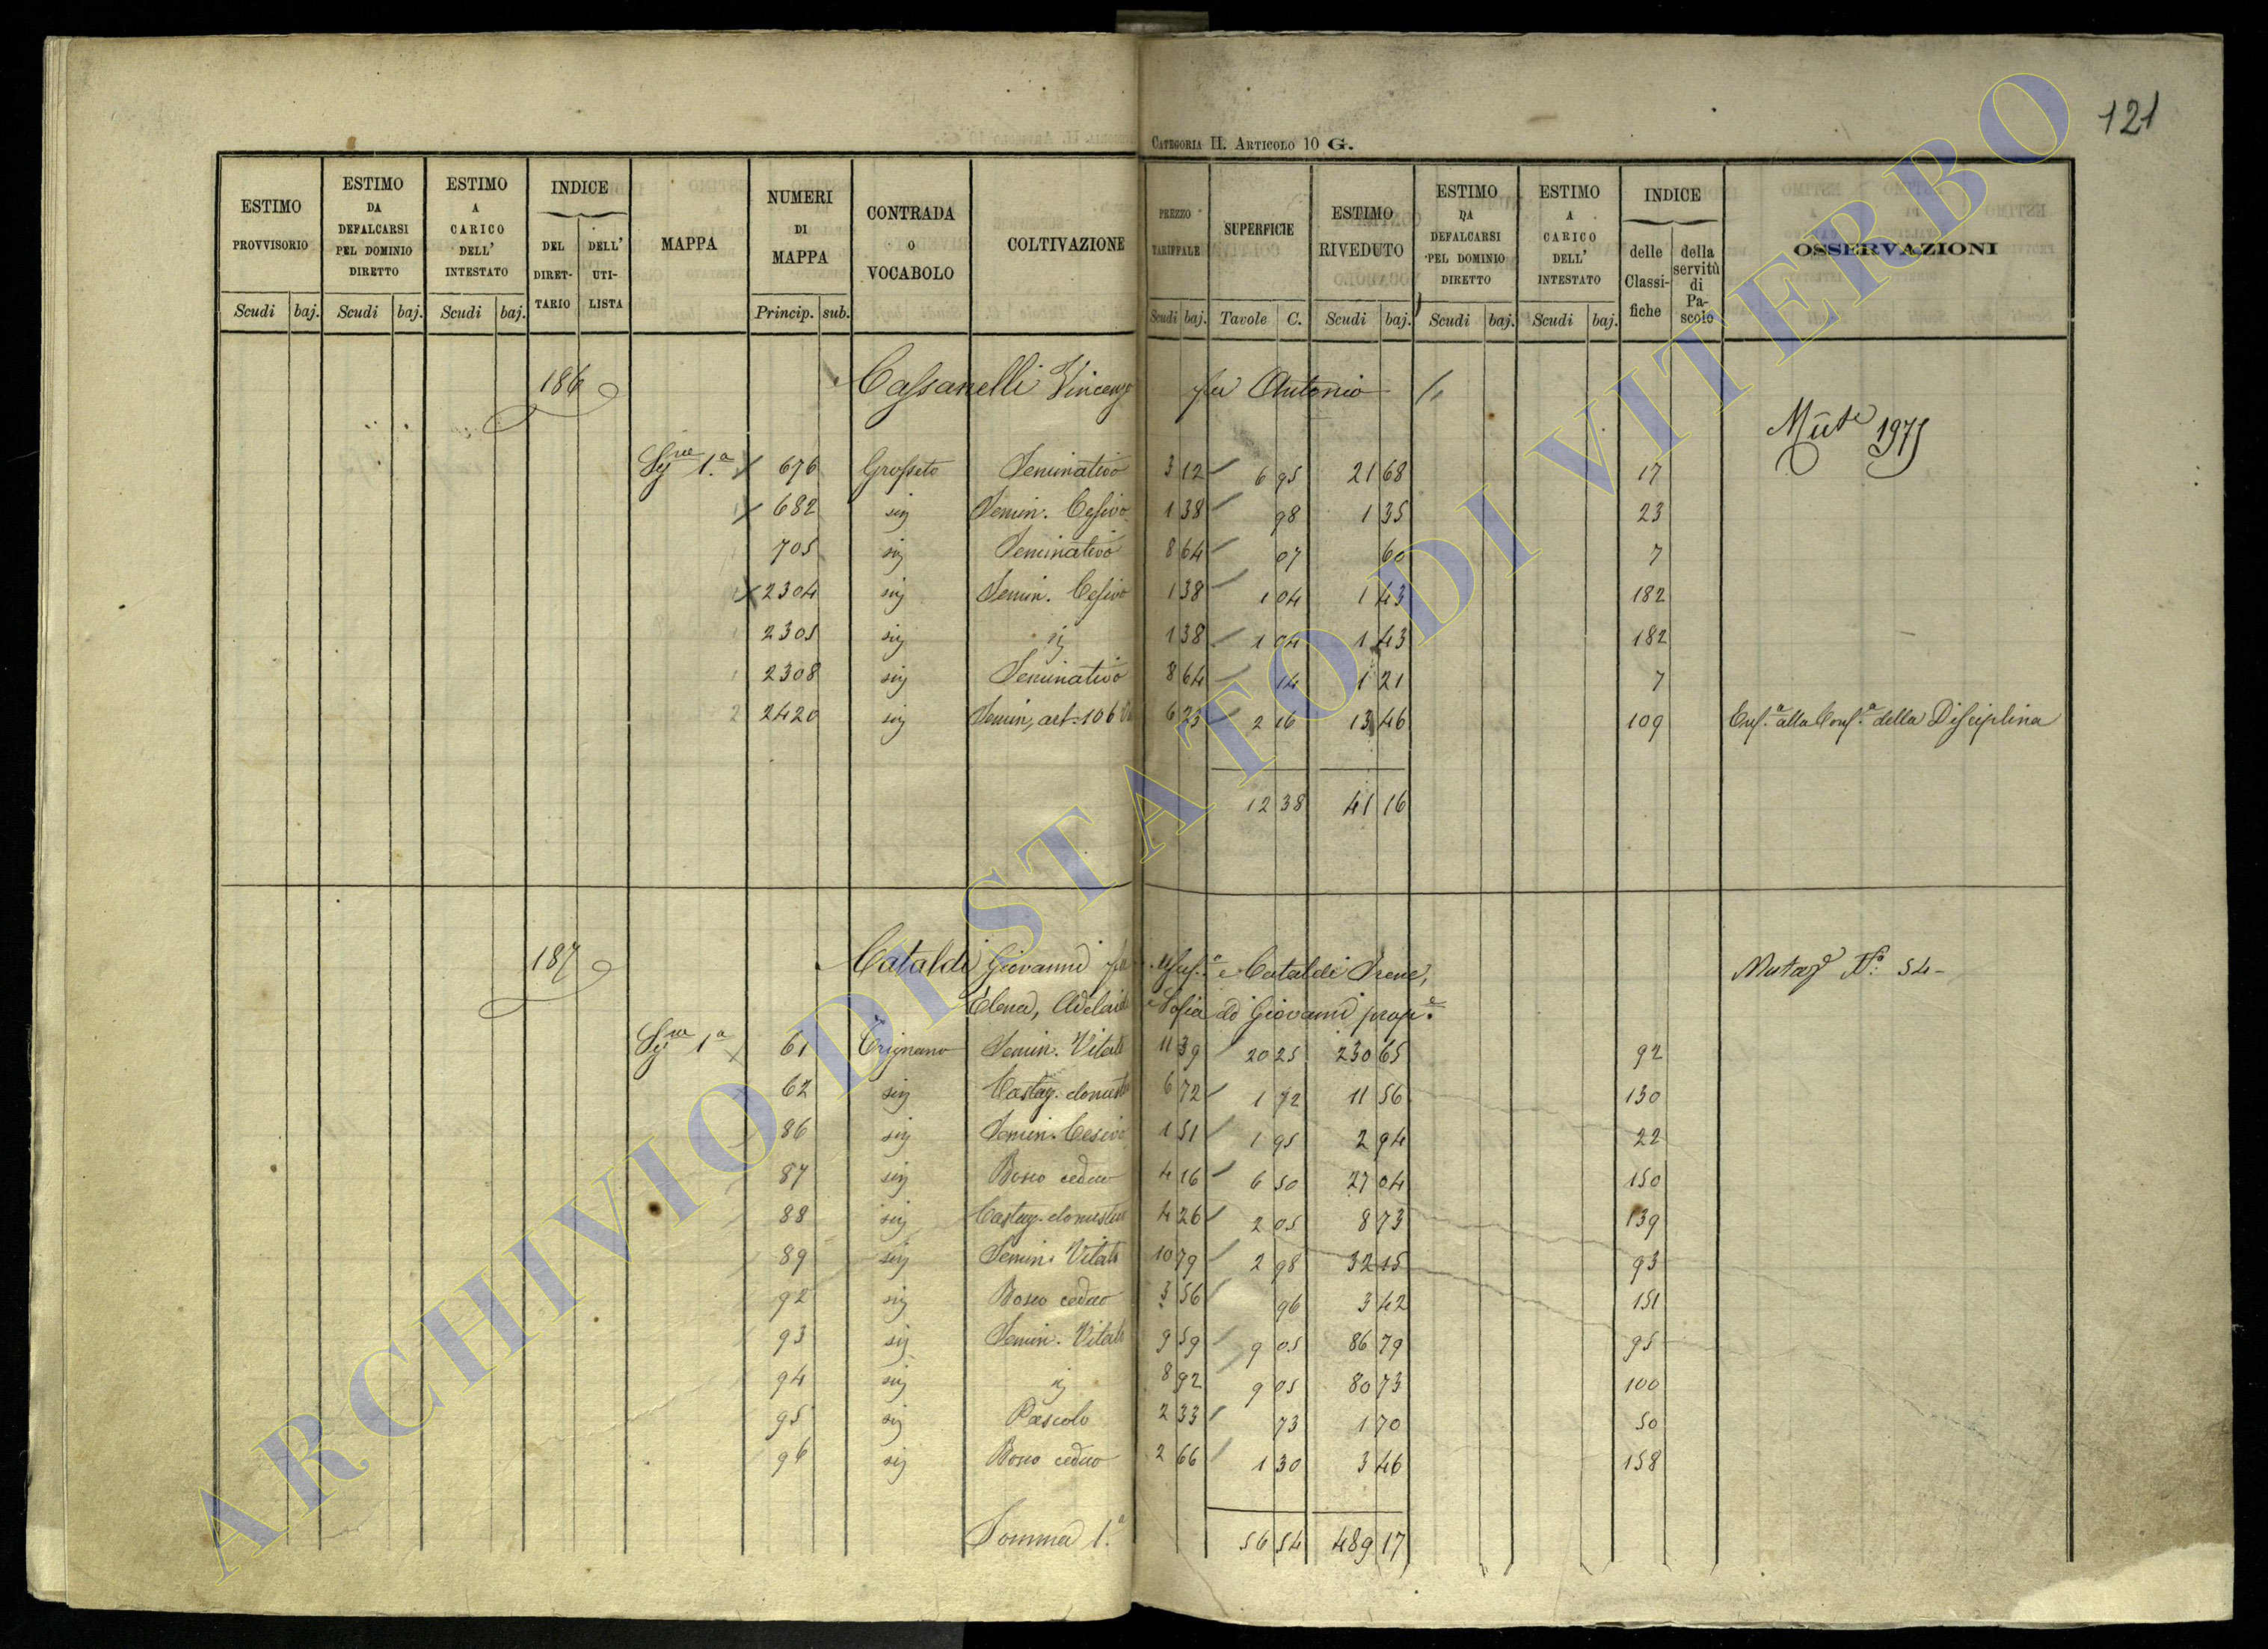 121
CATEGORIA II. ARTICOLO 10 G.
ESTIMO PROVVISORIO
ESTIMO DA DEFALCARSI PEL DOMINIO DIRETTO
ESTIMO A CARICO DELL' INTESTATO
INDICE
DEL DIRET-TARIO
DELL' UTI-LISTA
MAPPA
NUMERI DI MAPPA
CONTRADA O VOCABOLO
COLTIVAZIONE
PREZZO TARIFFALE
SUPERFICIE
ESTIMO RIVEDUTO
ESTIMO DA DEFALCARSI PEL DOMINIO DIRETTO
ESTIMO A CARICO DELL' INTESTATO
INDICE
delle Classi-fiche
della servitù di Pa-scolo
OSSERVAZIONI
Scudi baj. Scudi baj. Scudi baj. Princip. sub. Scudi baj. Tavole C. Scudi baj. Scudi baj. Scudi baj.
186 Cassanelli Vincenzo fu Antonio
1975
1.a 676 Grosseto Seminativo 3 12 6 95 21 68 17
682 Semin. Cesivo 1 38 98 1 35 23
705 Seminativo 8 64 07 60 7
2304 Semin. Cesivo 1 38 1 04 1 43 182
2305 1 38 1 04 1 43 182
2308 Seminativo 8 64 14 1 21 7
2420 Semin. art. 106 6 23 2 16 13 46 109 alla della Disciplina
12 38 41 16
187 Cataldi Giovanni e Cataldi Irene,
Elena, Adelaide e Sofia di Giovanni prop.e
N.o 54
1.a 61 Trignano Semin. Vitato 11 39 20 25 230 65 92
62 Castag. domest. 6 72 1 72 11 56 130
86 Semin. Cesivo 1 51 1 95 2 94 22
87 Bosco ceduo 4 16 6 50 27 04 150
88 Castag. domest. 4 26 2 05 8 73 139
89 Semin. Vitato 10 79 2 98 32 15 93
92 Bosco ceduo 3 56 96 3 42 151
93 Semin. Vitato 9 59 9 05 86 79 95
94 8 92 9 05 80 73 100
95 Pascolo 2 33 73 1 70 50
96 Bosco ceduo 2 66 1 30 3 46 158
Somma 1.a 56 54 489 17
ARCHIVIO DI STATO DI VITERBO